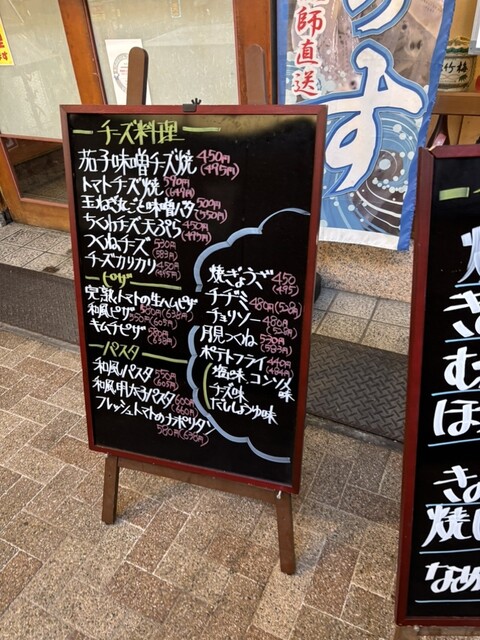 チーズ料理
茄子味噌チーズ焼 450円(495円)
トマトチーズ焼 590円(649円)
500円(550円)
ちくわチーズ天ぷら 450円(495円)
つくねチーズ 530円(583円)
チーズカリカリ 450円(495円)
ピザ
完熟トマトの生ハムピザ 580円(638円)
和風ピザ 550円(605円)
キムチピザ 580円(638円)
パスタ
和風パスタ 550円(605円)
和風明太子パスタ 600円(660円)
フレッシュトマトのナポリタン
580円(638円)
焼ぎょうざ 450(495)
チヂミ 480円(528円)
チョリソー 480(528円)
月見つくね 530円(583円)
ポテトフライ 440円(484円)
塩味、コンソメ味
チーズ味
だししょうゆ味
師直送
す
竹梅
焼
き
む
ほ
き
焼
なめ